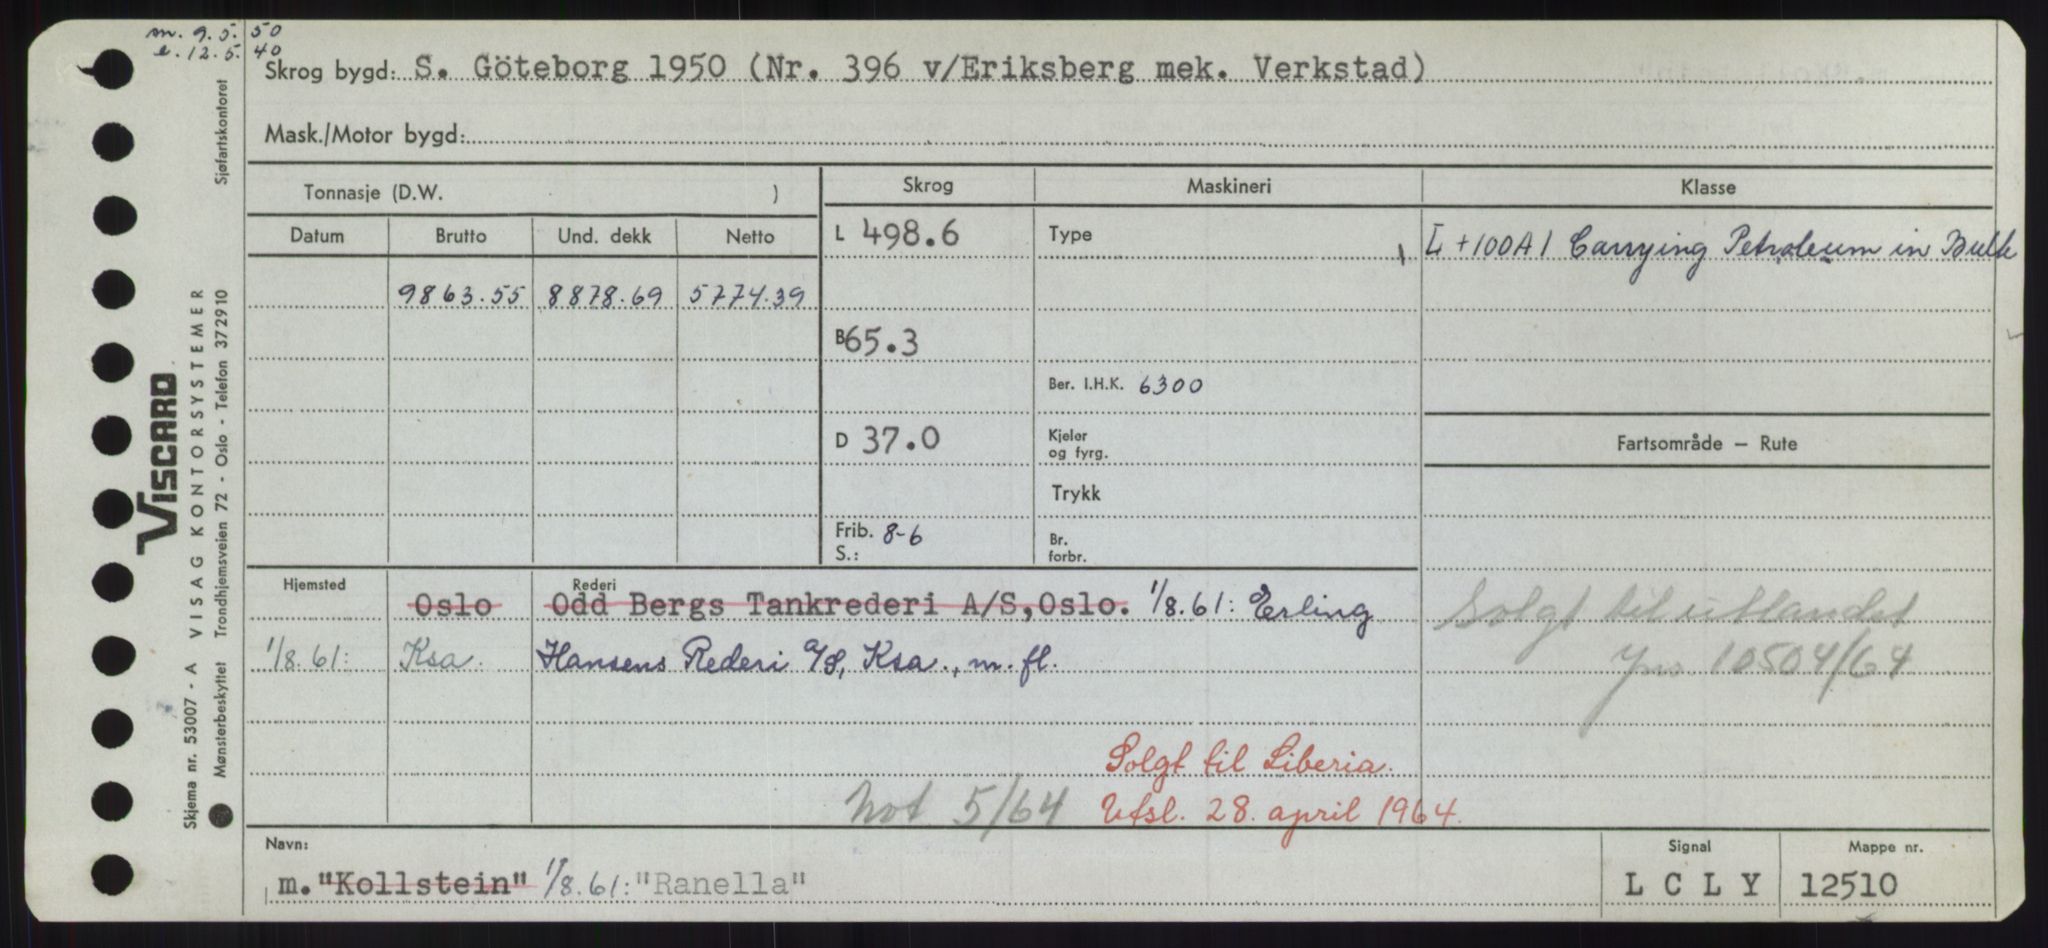 m. 9.5.50
e. 12.5.40
Skrog bygd: S. Göteborg 1950 (Nr. 396 v/Eriksberg mek. Verkstad)
Mask./Motor bygd:
Tonnasje (D.W. )
Skrog
Maskineri
Klasse
Datum
Brutto
Und. dekk
Netto
L 498.6
Type
+100A1 Carrying Petroleum in Bulk
9863.55 8878.69 5774.39
B 65.3
Ber. I.H.K. 6300
D 37.0
Kjeler
og fyrg.
Fartsområde — Rute
Trykk
Frib. 8-6
S.:
Br.
forbr.
Hjemsted
Rederi
Oslo Odd Bergs Tankrederi A/S, Oslo. 1/8.61: Erling
1/8.61: Ksa. Hansens Rederi A/S, Ksa., m.fl.
Solgt til utlandet
Jnr. 10504/64
Solgt til Liberia.
Not 5/64
Utsl. 28. april 1964.
Navn:
m. "Kollstein" 1/8.61: "Ranella"
Signal
L C L Y
Mappe nr.
12510
VISCARD
Skjema nr. 53007 - A VISAG KONTORSYSTEMER
Mønsterbeskyttet Trondhjemsveien 72 - Oslo - Telefon 372910 Sjøfartskontoret